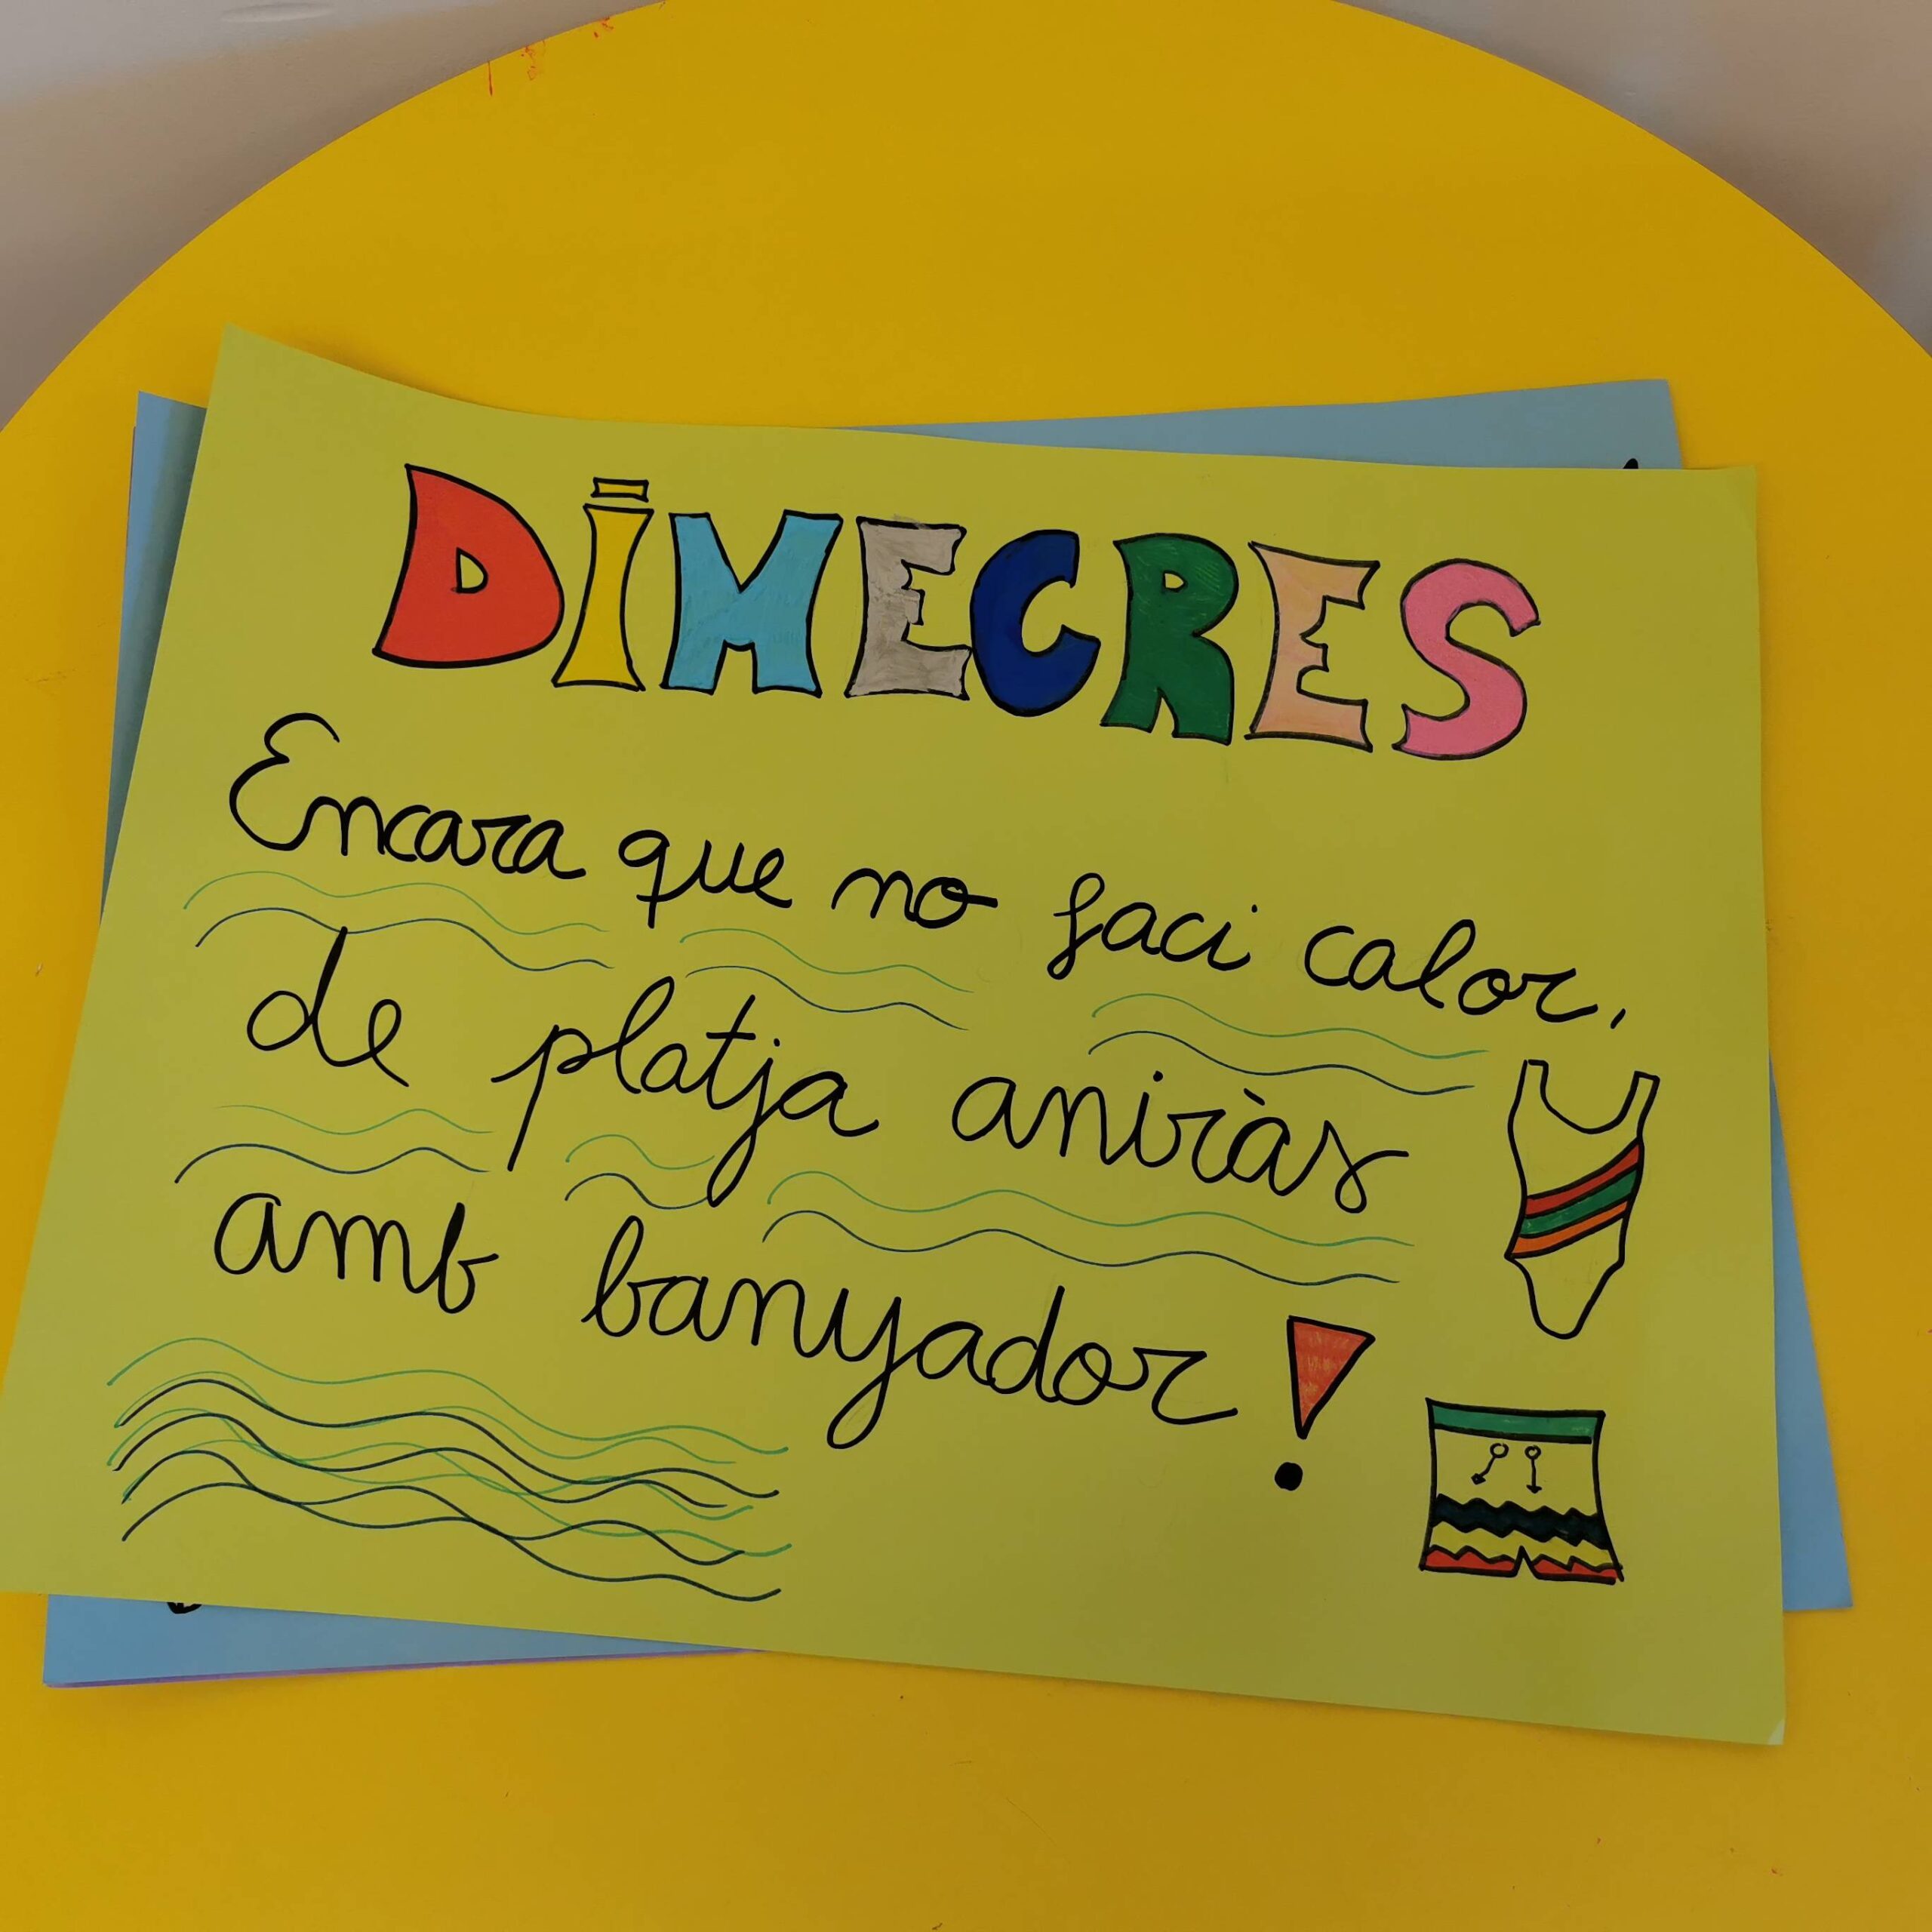 DIMECRES
Encara que no faci calor,
de platja aniràs
amb banyador!